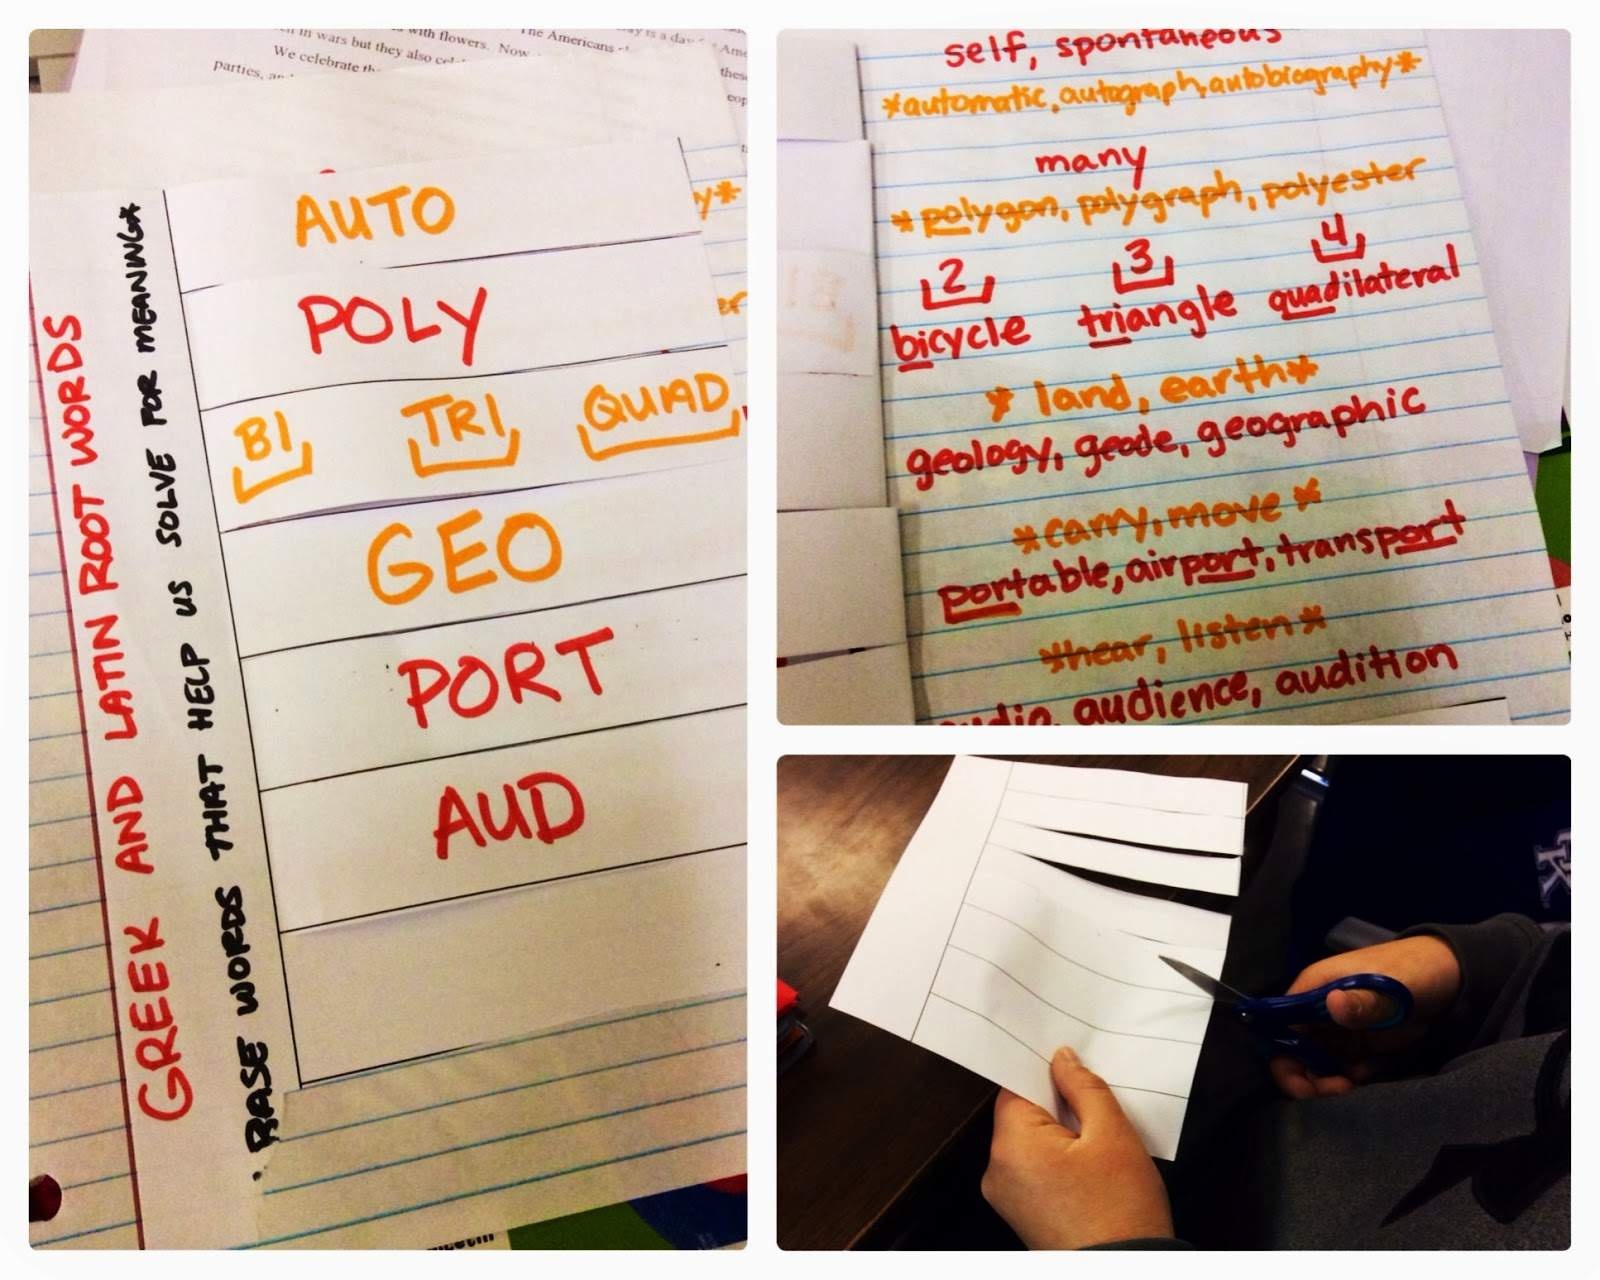 in wars but they also
with flowers. Now
The Americans
We celebrate
parties,
GREEK AND LATIN ROOT WORDS
BASE WORDS THAT HELP US SOLVE FOR MEANING*
AUTO
POLY
BI TRI QUAD
GEO
PORT
AUD
self, spontaneous
*automatic, autograph, autobiography*
many
*polygon, polygraph, polyester
2 3 4
bicycle triangle quadilateral
* land, earth*
geology, geode, geographic
*carry, move*
portable, airport, transport
*hear, listen*
audio, audience, audition